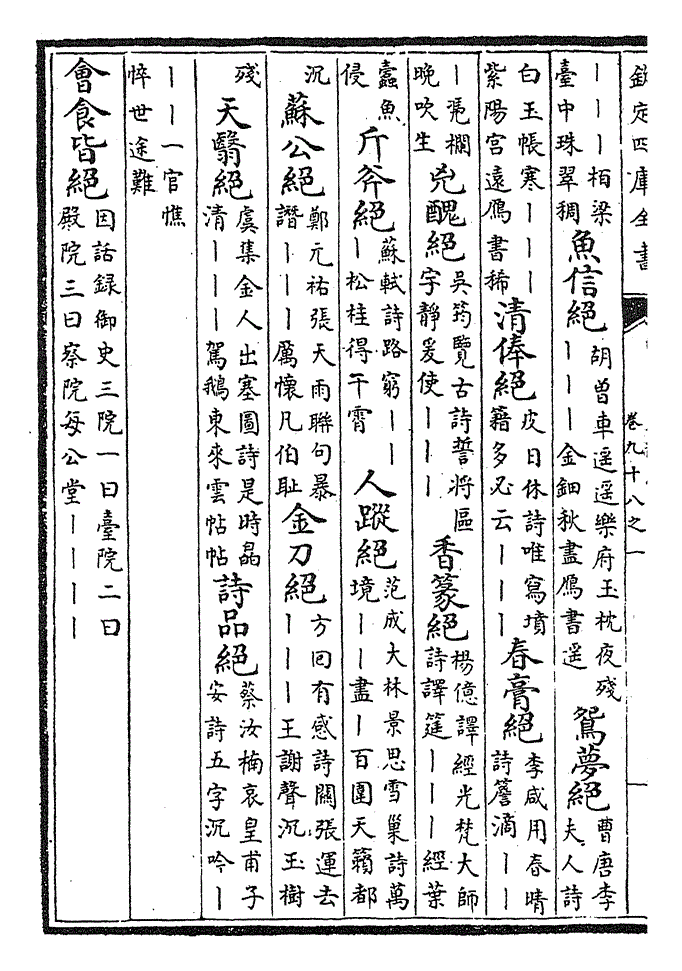 欽定四庫全書
卷九十八之一
丨丨丨栢梁臺中珠翠稠 魚信絕 胡曾車遥遥樂府玉枕夜殘丨丨丨金鈿秋盡鴈書遥 鴛夢絕 曹唐李夫人詩
白玉帳寒丨丨丨紫陽宫遠鴈書稀 清俸絕 皮日休詩唯寫墳籍多必云丨丨丨 春膏絕 李咸用春晴詩簷滴丨丨
丨凴欄晚吹生 兇醜絕 吳筠覽古詩誓將區字靜爰使丨丨丨 香篆絕 楊億譯經光梵大師詩譯筵丨丨丨經葉
蠹魚侵 斤斧絕 蘇軾詩路窮丨丨丨松桂得干霄 人蹤絕 范成大林景思雪巢詩萬境丨丨盡丨百圍天籟都
沉 蘇公絕 鄭元祐張天雨聯句暴譖丨丨丨厲懷凡伯耻 金刀絕 方回有感詩關張運去丨丨丨王謝聲沉玉樹
殘 天翳絕 虞集金人出塞圖詩是時晶清丨丨丨駕鵝東來雲帖帖 詩品絕 蔡汝楠哀皇甫子安詩五字沉吟丨
丨丨一官憔悴世途難
會食皆絕 因話録御史三院一曰臺院二曰殿院三曰察院每公堂丨丨丨丨